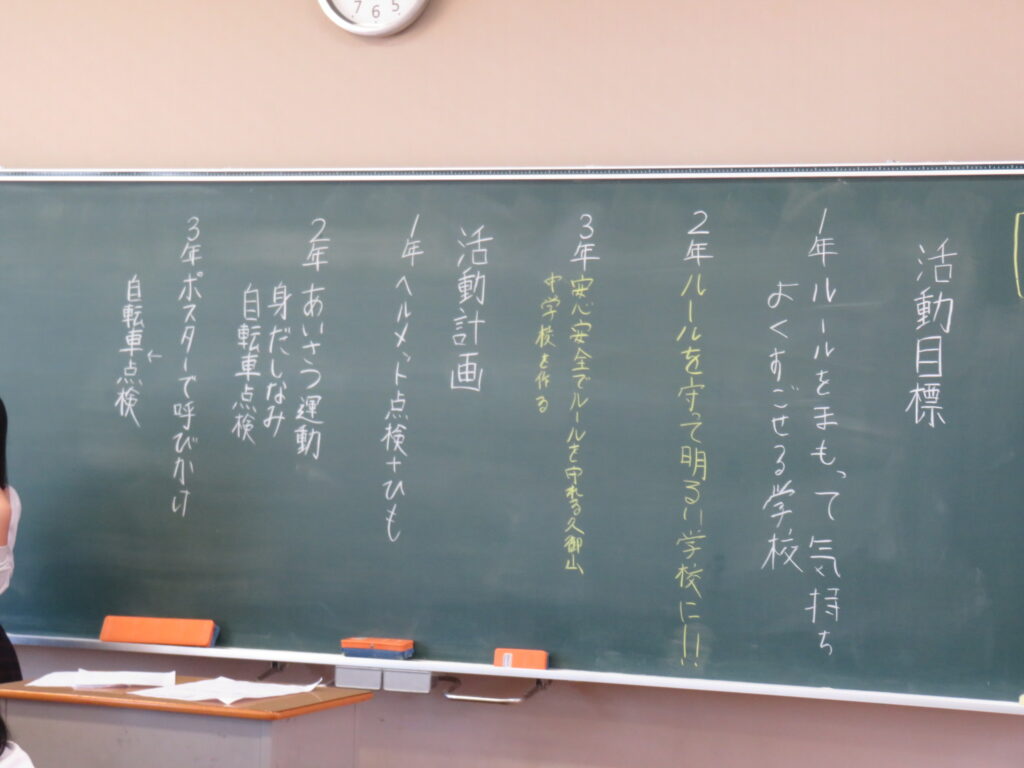 活動目標
1年 ルールをまもって気持ち
よくすごせる学校
2年 ルールを守って明るい学校に!!
3年 安心安全でルールを守れる久御山
中学校を作る
活動計画
1年 ヘルメット点検+ひも
2年 あいさつ運動
身だしなみ
自転車点検
3年 ポスターで呼びかけ
←
自転車点検
7 6 5